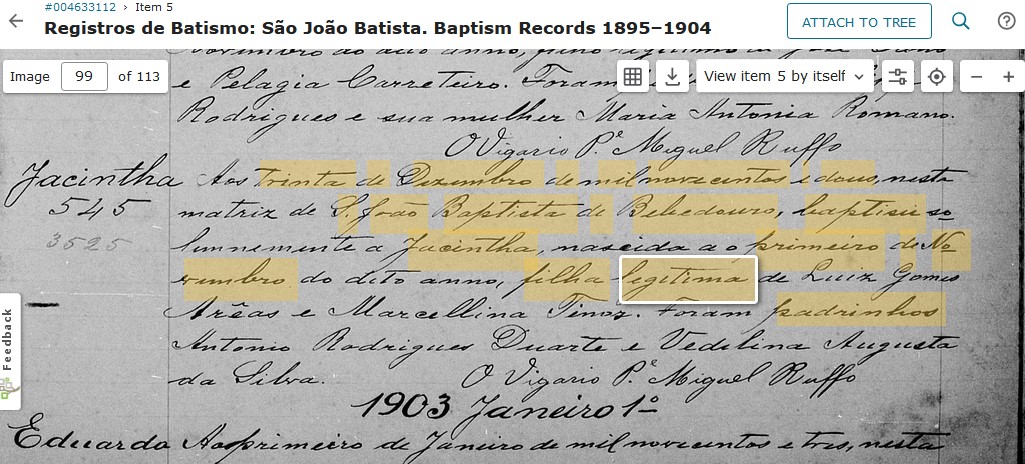 #004633112 › Item 5
Registros de Batismo: São João Batista. Baptism Records 1895–1904
ATTACH TO TREE
Image 99 of 113
View item 5 by itself
Novembro do dito anno, filho legitimo de José
e Pelagia Carreteiro. Foram
Rodrigues e sua mulher Maria Antonia Romano.
O Vigario P.e Miguel Ruffo
Jacintha
545
3525
Aos trinta de Dezembro de mil novecentos e dous, nesta
matriz de S. João Baptista de Bebedouro, baptisei so
lemnemente a Jacintha, nascida a o primeiro de No
vembro do dito anno, filha legitima de Luiz Gomes
Arêas e Marcellina Tinoz. Foram padrinhos
Antonio Rodrigues Duarte e Vedilina Augusta
da Silva. O Vigario P.e Miguel Ruffo
1903 Janeiro 1º
Eduardo Aos primeiro de Janeiro de mil novecentos e tres, nesta
Feedback